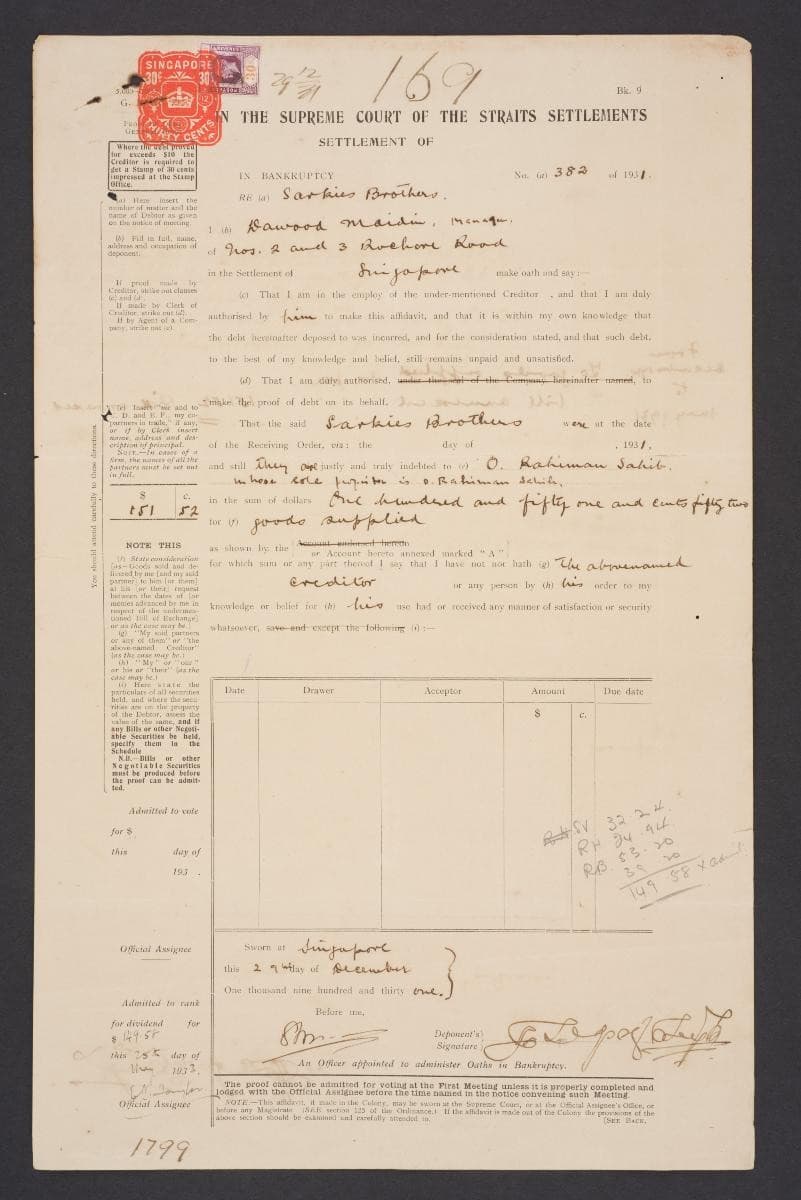 SINGAPORE
30c 30c
THIRTY CENTS
29/12/31
169
Bk. 9
G.
IN THE SUPREME COURT OF THE STRAITS SETTLEMENTS
SETTLEMENT OF
IN BANKRUPTCY No. (a) 382 of 1931.
RE (a) Sarkies Brothers.
I (b) Dawood Maidin, Manager.
of Nos. 2 and 3 Rochore Road
in the Settlement of Singapore make oath and say:—
(c) That I am in the employ of the under-mentioned Creditor , and that I am duly
authorised by him to make this affidavit, and that it is within my own knowledge that
the debt hereinafter deposed to was incurred, and for the consideration stated, and that such debt,
to the best of my knowledge and belief, still remains unpaid and unsatisfied.
(d) That I am duly authorised, under the seal of the Company hereinafter named, to
make the proof of debt on its behalf.
That the said Sarkies Brothers were at the date
of the Receiving Order, viz: the day of , 1931.
and still they are justly and truly indebted to (e) O. Rahiman Sahib.
whose sole proprietor is O. Rahiman Sahib.
in the sum of dollars One hundred and fifty one and cents fifty two
for (f) goods supplied
as shown by the Account endorsed hereto
or Account hereto annexed marked "A"
for which sum or any part thereof I say that I have not nor hath (g) the abovenamed
creditor or any person by (h) his order to my
knowledge or belief for (h) his use had or received any manner of satisfaction or security
whatsoever, save and except the following (i) :—
Date Drawer Acceptor Amount Due date
$ c.
SV 32.24
RH 24.94
RB 53.20
39 20
149 58
Sworn at Singapore
this 29th day of December
One thousand nine hundred and thirty one.
Before me,
Deponent's
Signature
An Officer appointed to administer Oaths in Bankruptcy.
The proof cannot be admitted for voting at the First Meeting unless it is properly completed and
lodged with the Official Assignee before the time named in the notice convening such Meeting.
NOTE.—This affidavit, if made in the Colony, may be sworn at the Supreme Court, or at the Official Assignee's Office, or
before any Magistrate (SEE section 125 of the Ordinance.) If the affidavit is made out of the Colony the provisions of the
above section should be examined and carefully attended to. [SEE BACK.
Where the debt proved
for exceeds $10 the
Creditor is required to
get a Stamp of 30 cents
impressed at the Stamp
Office.
(a) Here insert the
number of matter and the
name of Debtor as given
on the notice of meeting.
(b) Fill in full, name,
address and occupation of
deponent.
If proof made by
Creditor, strike out clauses
(c) and (d)
If made by Clerk of
Creditor, strike out (d).
If by Agent of a Com-
pany, strike out (c).
You should attend carefully to these directions.
(e) Insert "me and to
C. D. and E. F., my co-
partners in trade," if any,
or if by Clerk insert
name, address and des-
cription of principal.
NOTE.—In cases of a
firm, the names of all the
partners must be set out
in full.
$ c.
151 52
NOTE THIS
(f) State consideration
[as—Goods sold and de-
livered by me [and my said
partner] to him [or them]
at his [or their] request
between the dates of [or
monies advanced by me in
respect of the undermen-
tioned Bill of Exchange]
or as the case may be.]
(g) "My said partners
or any of them" or "the
above-named Creditor"
(as the case may be.)
(h) "My" or "our"
or his or "their" (as the
case may be.)
(i) Here state the
particulars of all securities
held, and where the secu-
rities are on the property
of the Debtor, assess the
value of the same, and if
any Bills or other Negoti-
able Securities be held,
specify them in the
Schedule
N.B.—Bills or other
Negotiable Securities
must be produced before
the proof can be admit-
ted.
Admitted to vote
for $
this day of
193 .
Official Assignee
Admitted to rank
for dividend for
$ 149.58
this 25th day of
1933.
Official Assignee
1799